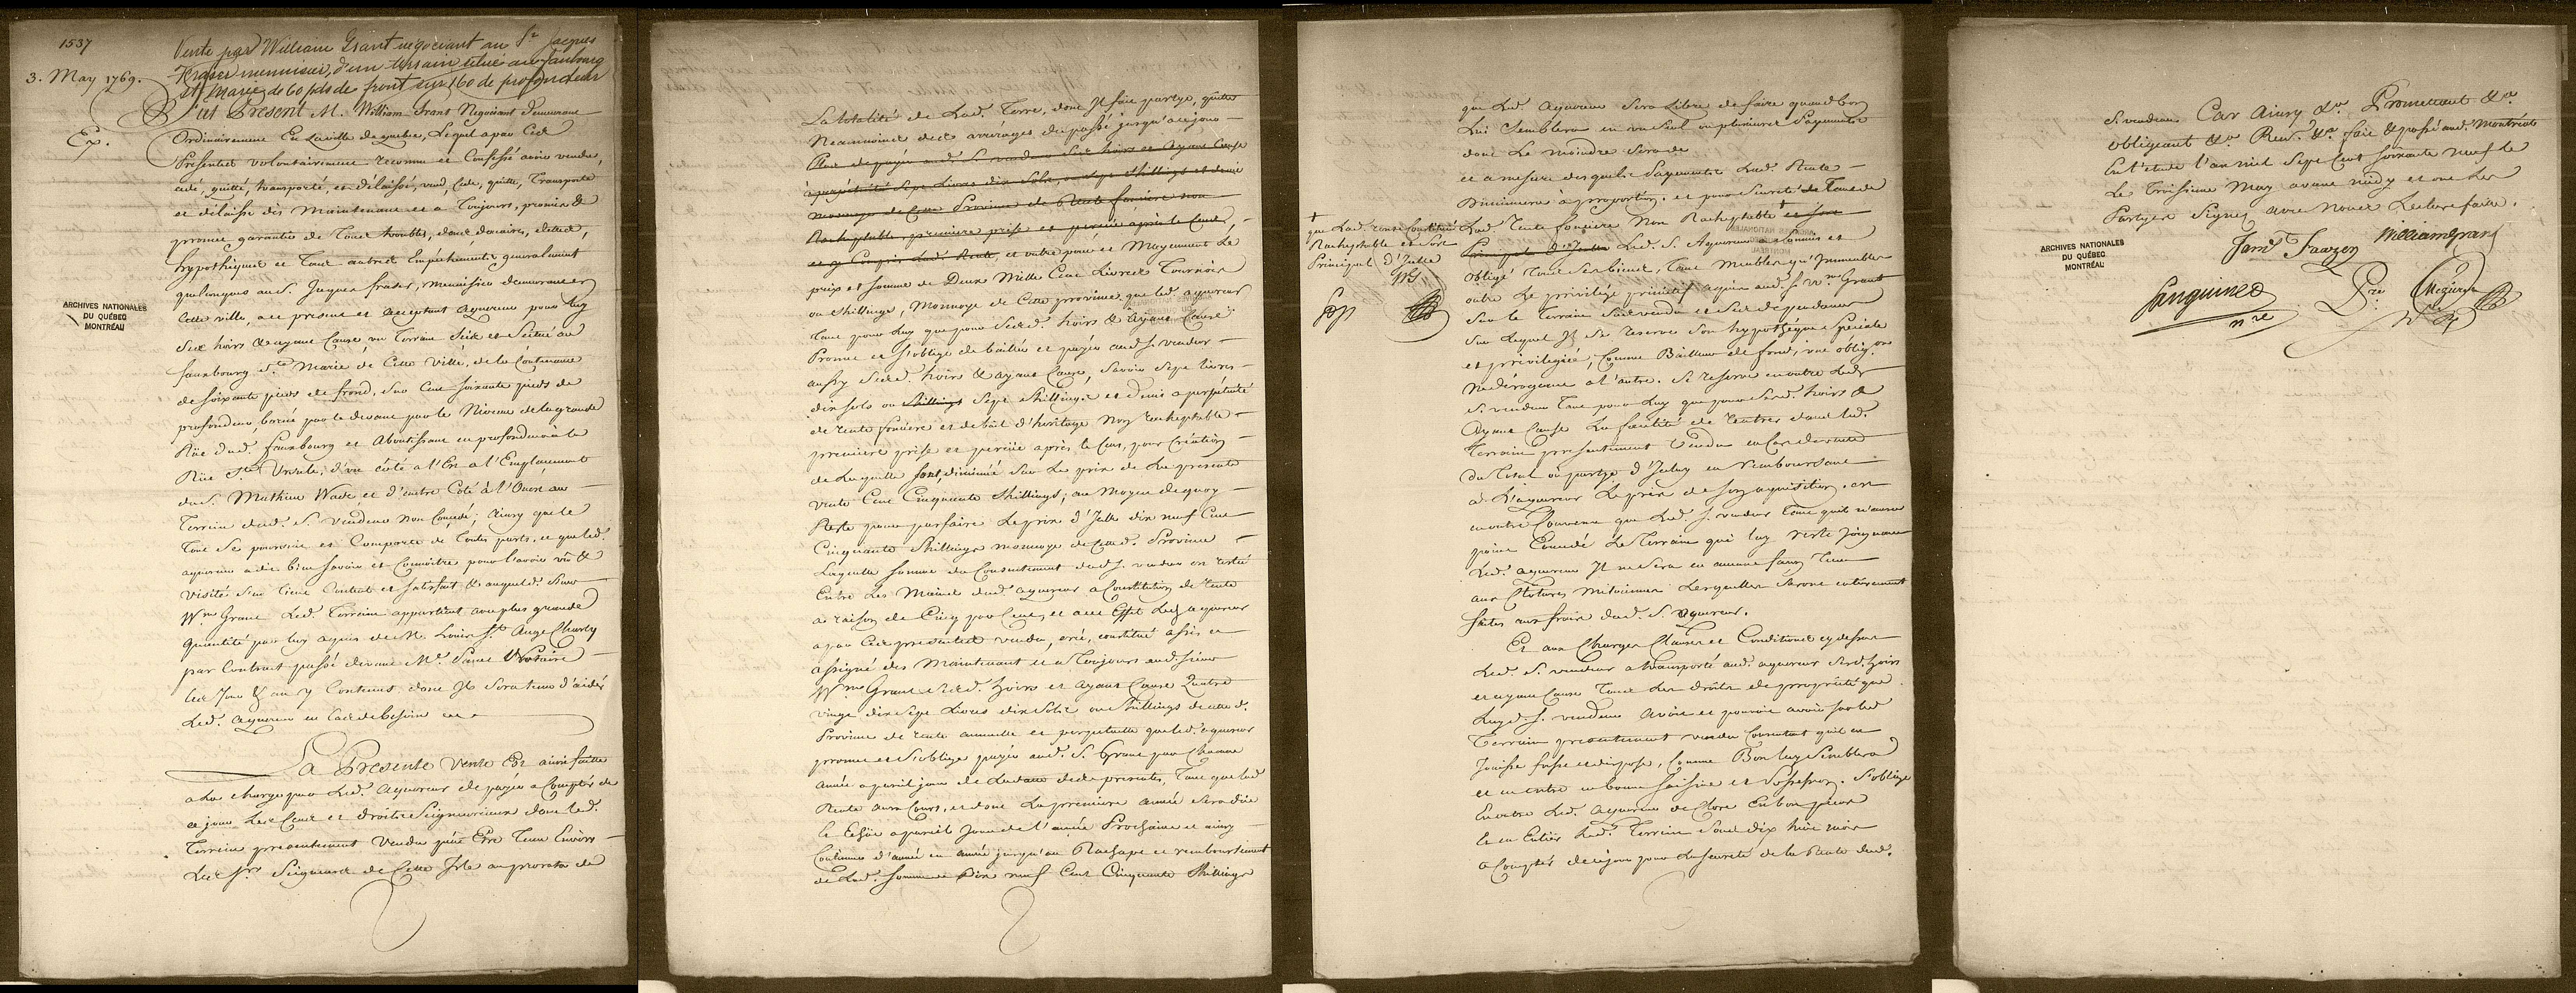 1537
3. May 1769.
Vente par William Grant negociant au Sr Jacques
Fraser menuisier, d'un terrain situé au faubourg
St Marie, de 60 pds de front sur 160 de profondeur
Fut Present M. William Grant Negociant demeurant
Ex.
Ordinairement En la ville de quebec, Lequel a par Ces
Presentes volontairement reconnu et Confessé avoir vendu,
cédé, quitté, transporté, et délaissé, vend, Cede, quitte, Transporte
et délaisse dès Maintenant et a Toujours, promis &
promet garantir de Tous troubles, dons douaires, dettes,
hypothèques et Tous autres Empêchements généralement
quelconques au S. Jacques fraser, Menuisier demeurant en
Cette ville, a ce present et acceptant aquereur pour luy
Ses hoirs & ayans Cause, un Terrain Sis et Scitué au
fauxbourg Ste Marie de Cette Ville, de la Contenance
de soixante pieds de frond, Sur Cent soixante pieds de
profondeur, borné par le devant par le Niveau de la grande
Rüe dud. fauxbourg et Aboutissant en profondeur à la
Rüe Ste Ursule, d'un côté a l'Est a l'Emplacement
du S. Mathieu Wade et d'autre Coté à l'Ouest au
Terrein dud. S. vendeur non Concedé; Ainsy que le
Tout Se poursuit et Comporte de Toutes parts, et que led.
aquereur a dit bien savoir et Connoitre pour l'avoir vû &
visité s'en tient Content et satisfait & auquel d. Sieur
Wm Grant Led. Terrein appartient avec plus grande
Quantité par luy aquis de M. Louis St Ange Charly
par Contract passé devant Me. Panet Notaire
Les Jour & an y Contenus, dont Il Sera tenu d'aider
Led. Aquereur en Cas de besoin
La Presente Vente Est ainsi faitte
a la charge par Led. Aquereur de payer a Compter de
ce jour Les Cens et droits Seigneuriaux dont led.
Terrein presentement Vendu peut Etre Tenu Envers
Les Srs Seigneurs de Cette Isle au prorata de
ARCHIVES NATIONALES
DU QUÉBEC
MONTRÉAL
La totalité de Lad. Terre, dont Il fait partye, quitte
Neanmoins des arrerages du passé jusqu'a ce jour
Plus de payer aud. S. vendeur Ses hoirs et Ayans Cause
à perpétuité Sept Livres dix Sols, ou Sept Shillings et demi
monnoye de Cette Province de Rente fonciere non
Rachetable, premiere prise et perçue après le Cens,
et outre pour et Moyennant Le
prix et somme de Deux Mille Cent Livres Tournois
ou Shillings, Monnoye de Cette province que led. aquereur
tant pour Luy que pour Sesd. hoirs & Ayans Cause
Promet et S'oblige de bailler et payer aud. S. Vendeur
ausdy Sesd. hoirs & ayans Cause, Savoir Sept livres
dix sols ou Shillings Sept Shillings et Demi a perpétuité
de rente fonciere et de bail d'heritage Non rachetable
premiere prise et perçüe après le Cens, pour Création
de Laquelle sont diminué sur Le prix de la presente
vente Cent Cinquante Shillings; au Moyen de quoy
Reste pour parfaire Le prix d'Icelle dix neuf Cent
Cinquante Shillings monnoye de Cette d. Province
Laquelle somme du Consentement dud. S. vendeur est resté
Entre les Mains dud. aquereur a Constitution de rente
a raison de Cinq pour Cent, et a cet Effet Led. aquereur
a par Ces presentes vendu, créé, constitué assis et
assigné dès Maintenant et a Toujours aud. sieur
Wm Grant Sesd. hoirs et ayans Cause Quatre
vingt dix Sept Livres dix Sols ou Shillings de cette d.
Province de rente annuelle et perpetuelle que led. aquereur
promet et s'oblige payer aud. S. Grant par Chacune
Année a pareil jour de La date des presentes, tant que lad.
Rente aura Cours, et dont La premiere année sera düe
& Echüe a pareil Jour de l'année Prochaine et ainsy
Continuer d'année en année jusqu'au Rachapt et remboursement
de Lad. somme de Dix neuf Cent Cinquante Shillings
que Led. Aquereur Sera Libre de faire quand bon
Lui Semblera en un seul ou plusieurs Payements
dont Le moindre Sera de
et a mesure desquels Payements Lad. Rente
Diminuera à proportion. et pour Sureté de Tant de
Lad. Rente fonciere Non Rachetable † et Sort
Principal d'Icelle Led. S. Aquereur a soumis et
† que Lad. rente Constituée
Rachetable et Sort
Principal d'Icelle
WG
Obligé Tous Ses biens, Tant Meubles qu'Immeubles
outre Le privilége primitif aquis aud. S. Wm Grant
Sur le Terrain Susvendu et Ses dependances
Sur Lequel Il Se reserve Son hypothèque Speciale
et privilegiée, Comme Bailleur de fond, une oblig.on
Ne dérogeant a l'autre. Se reserve en outre Led.
S. vendeur Tant pour Luy que pour Sesd. hoirs &
Ayans Cause La faculté de rentrer dans led.
Terrain presentement Vendu en Cas de vente
du Total ou partye d'Iceluy en Remboursant
a L'aquereur Le prix de son aquisition. est
en outre Convenu que Led. S. vendeur tant qu'il n'aura
point Concedé Le Terrain qui luy reste Joignant
Led. aquereur Il ne Sera en aucune façon Tenu
aux Clotures mitoiennes Lesquelles Seront entierement
faites aux frais dud. S. aquereur.
Et aux Charges Clauses et Conditions cy dessus
Led. S. vendeur a transporté aud. aquereur Sesd. hoirs
et ayans Cause Tous Les droits de proprieté que
Luy d. S. vendeur Avoit et pouvoit avoir sur led.
Terrein presentement vendu Consentant qu'il en
Jouisse fasse et dispose, Comme Bon luy Semblera
et en entre en bonne Saisine et Possession. S'oblige
En outre Led. Aquereur de Clore En bon pieux
Led. Terrein Sous dix huit mois
a Compter de ce jour pour La sureté de la Rente dud.
S. vendeur. Car Ainsy &a. Promettant &a.
obligeant &a. Ren.t &a. fait & passé aud. Montreal
En l'etude l'an mil Sept Cent soixante neuf le
Le Troisieme May avant midy et ont Les
Partyes Signez avec Nous Lecture faite.
William Grant
Sanguinet
nre
Mezière
ARCHIVES NATIONALES
DU QUÉBEC
MONTRÉAL